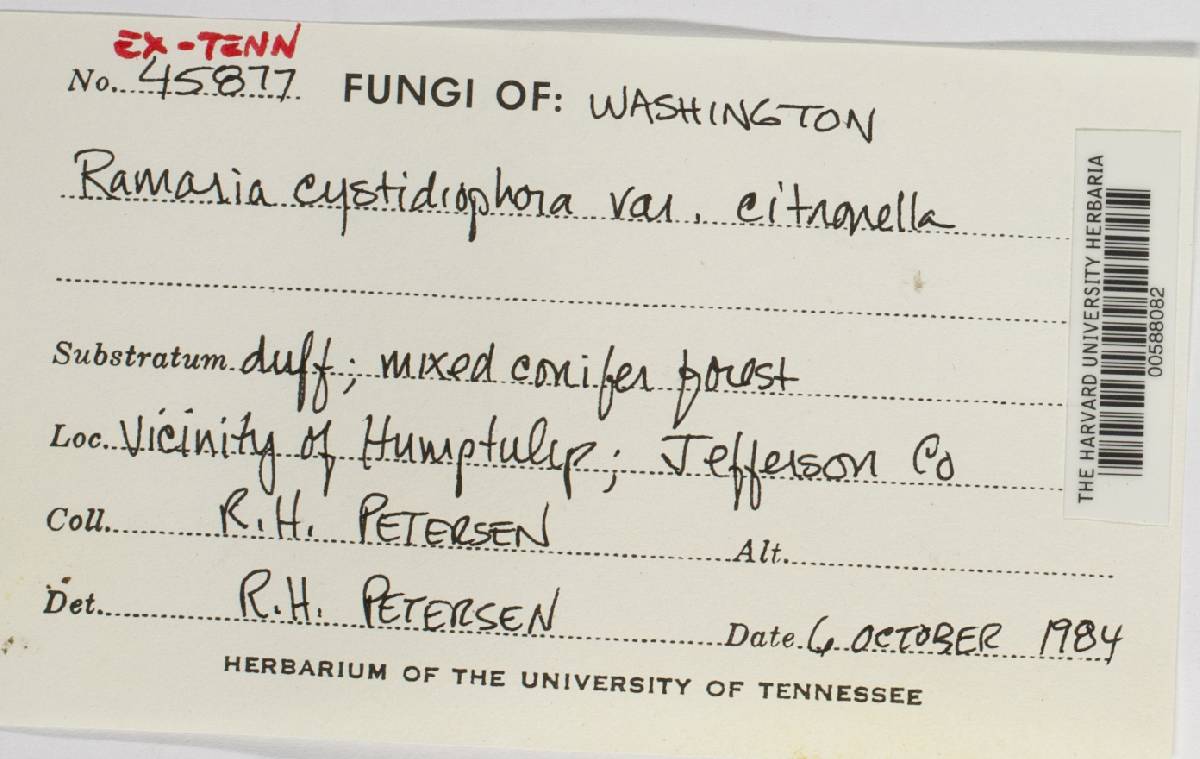 EX-TENN
No. 45877 FUNGI OF: WASHINGTON
Ramaria cystidiophora var. citronella
Substratum duff; mixed conifer forest
Loc. Vicinity of Humptulip; Jefferson Co
Coll. R.H. PETERSEN Alt.
Det. R.H. PETERSEN Date 6 OCTOBER 1984
HERBARIUM OF THE UNIVERSITY OF TENNESSEE
THE HARVARD UNIVERSITY HERBARIA
00588082